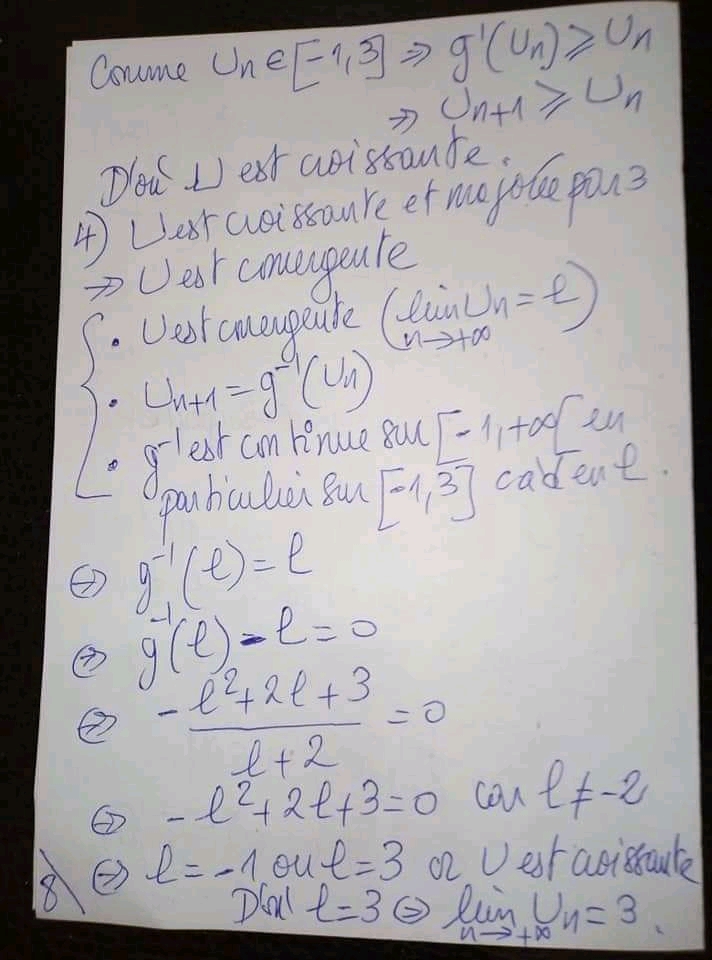 Comme Un ∈ [-1,3] ⇒ g⁻¹(Un) ⩾ Un
⇒ Un+1 ⩾ Un
D'où U est croissante.
4) U est croissante et majorée par 3
⇒ U est convergente
• U est convergente (lim Un = ℓ)
n→+∞
• Un+1 = g⁻¹(Un)
• g⁻¹ est continue sur [-1,+∞[ en
particulier sur [-1,3] càd en ℓ.
⇔ g⁻¹(ℓ) = ℓ
⇔ g⁻¹(ℓ) - ℓ = 0
⇔ -ℓ²+2ℓ+3 / ℓ+2 = 0
⇔ -ℓ²+2ℓ+3=0 car ℓ ≠ -2
⇔ ℓ = -1 ou ℓ = 3 or U est croissante
8
D'où ℓ = 3 ⇔ lim Un = 3.
n→+∞